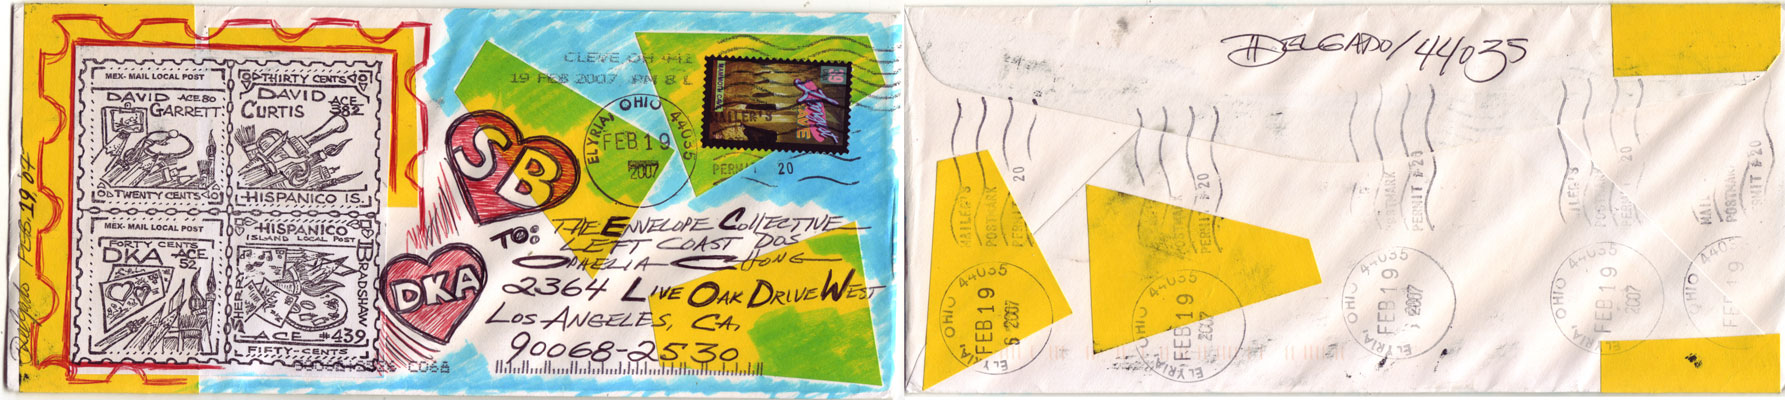 MEX- MAIL LOCAL POST
DAVID ACE 80
GARRETT
TWENTY CENTS
THIRTY CENTS
DAVID
CURTIS ACE
382
HISPANICO IS.
MEX- MAIL LOCAL POST
FORTY CENTS
DKA ACE
52
HISPANICO
ISLAND LOCAL POST
SHERRI
BRADSHAW
ACE #439
FIFTY-CENTS
Delgado FEB. 19, 07
SB
DKA
CLEVE OH 441
19 FEB 2007 PM 8 L
ELYRIA, OHIO 44035
FEB 19
2007
MAILER'S
PERMIT 20
39
TO: THE ENVELOPE COLLECTIVE
LEFT COAST DOS
OPHELIA CHONG
2364 LIVE OAK DRIVE WEST
LOS ANGELES, CA.
90068-2530
C068
DELGADO/44035
MAILER'S
POSTMARK
PERMIT 20
ELYRIA, OHIO 44035
FEB 19
2007
POSTMARK
PERMIT 20
ELYRIA, OHIO 44035
FEB 19
2007
POSTMARK
PERMIT 20
ELYRIA, OHIO 44035
FEB 19
2007
POSTMARK
PERMIT 20
ELYRIA, OHIO 44035
FEB 19
2007
MAILER'S
POSTMARK
PERMIT 20
44035
FEB 19
2007